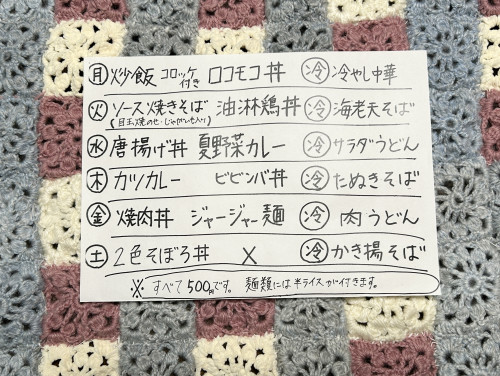 月 炒飯 コロッケ付き ロコモコ丼 冷 冷やし中華
火 ソース焼きそば 油淋鶏丼 冷 海老天そば
(目玉焼のせ・じゃがいも入り)
水 唐揚げ丼 夏野菜カレー 冷 サラダうどん
木 カツカレー ビビンバ丼 冷 たぬきそば
金 焼肉丼 ジャージャー麺 冷 肉うどん
土 2色そぼろ丼 × 冷 かき揚そば
※ すべて500円です。麺類には半ライスが付きます。